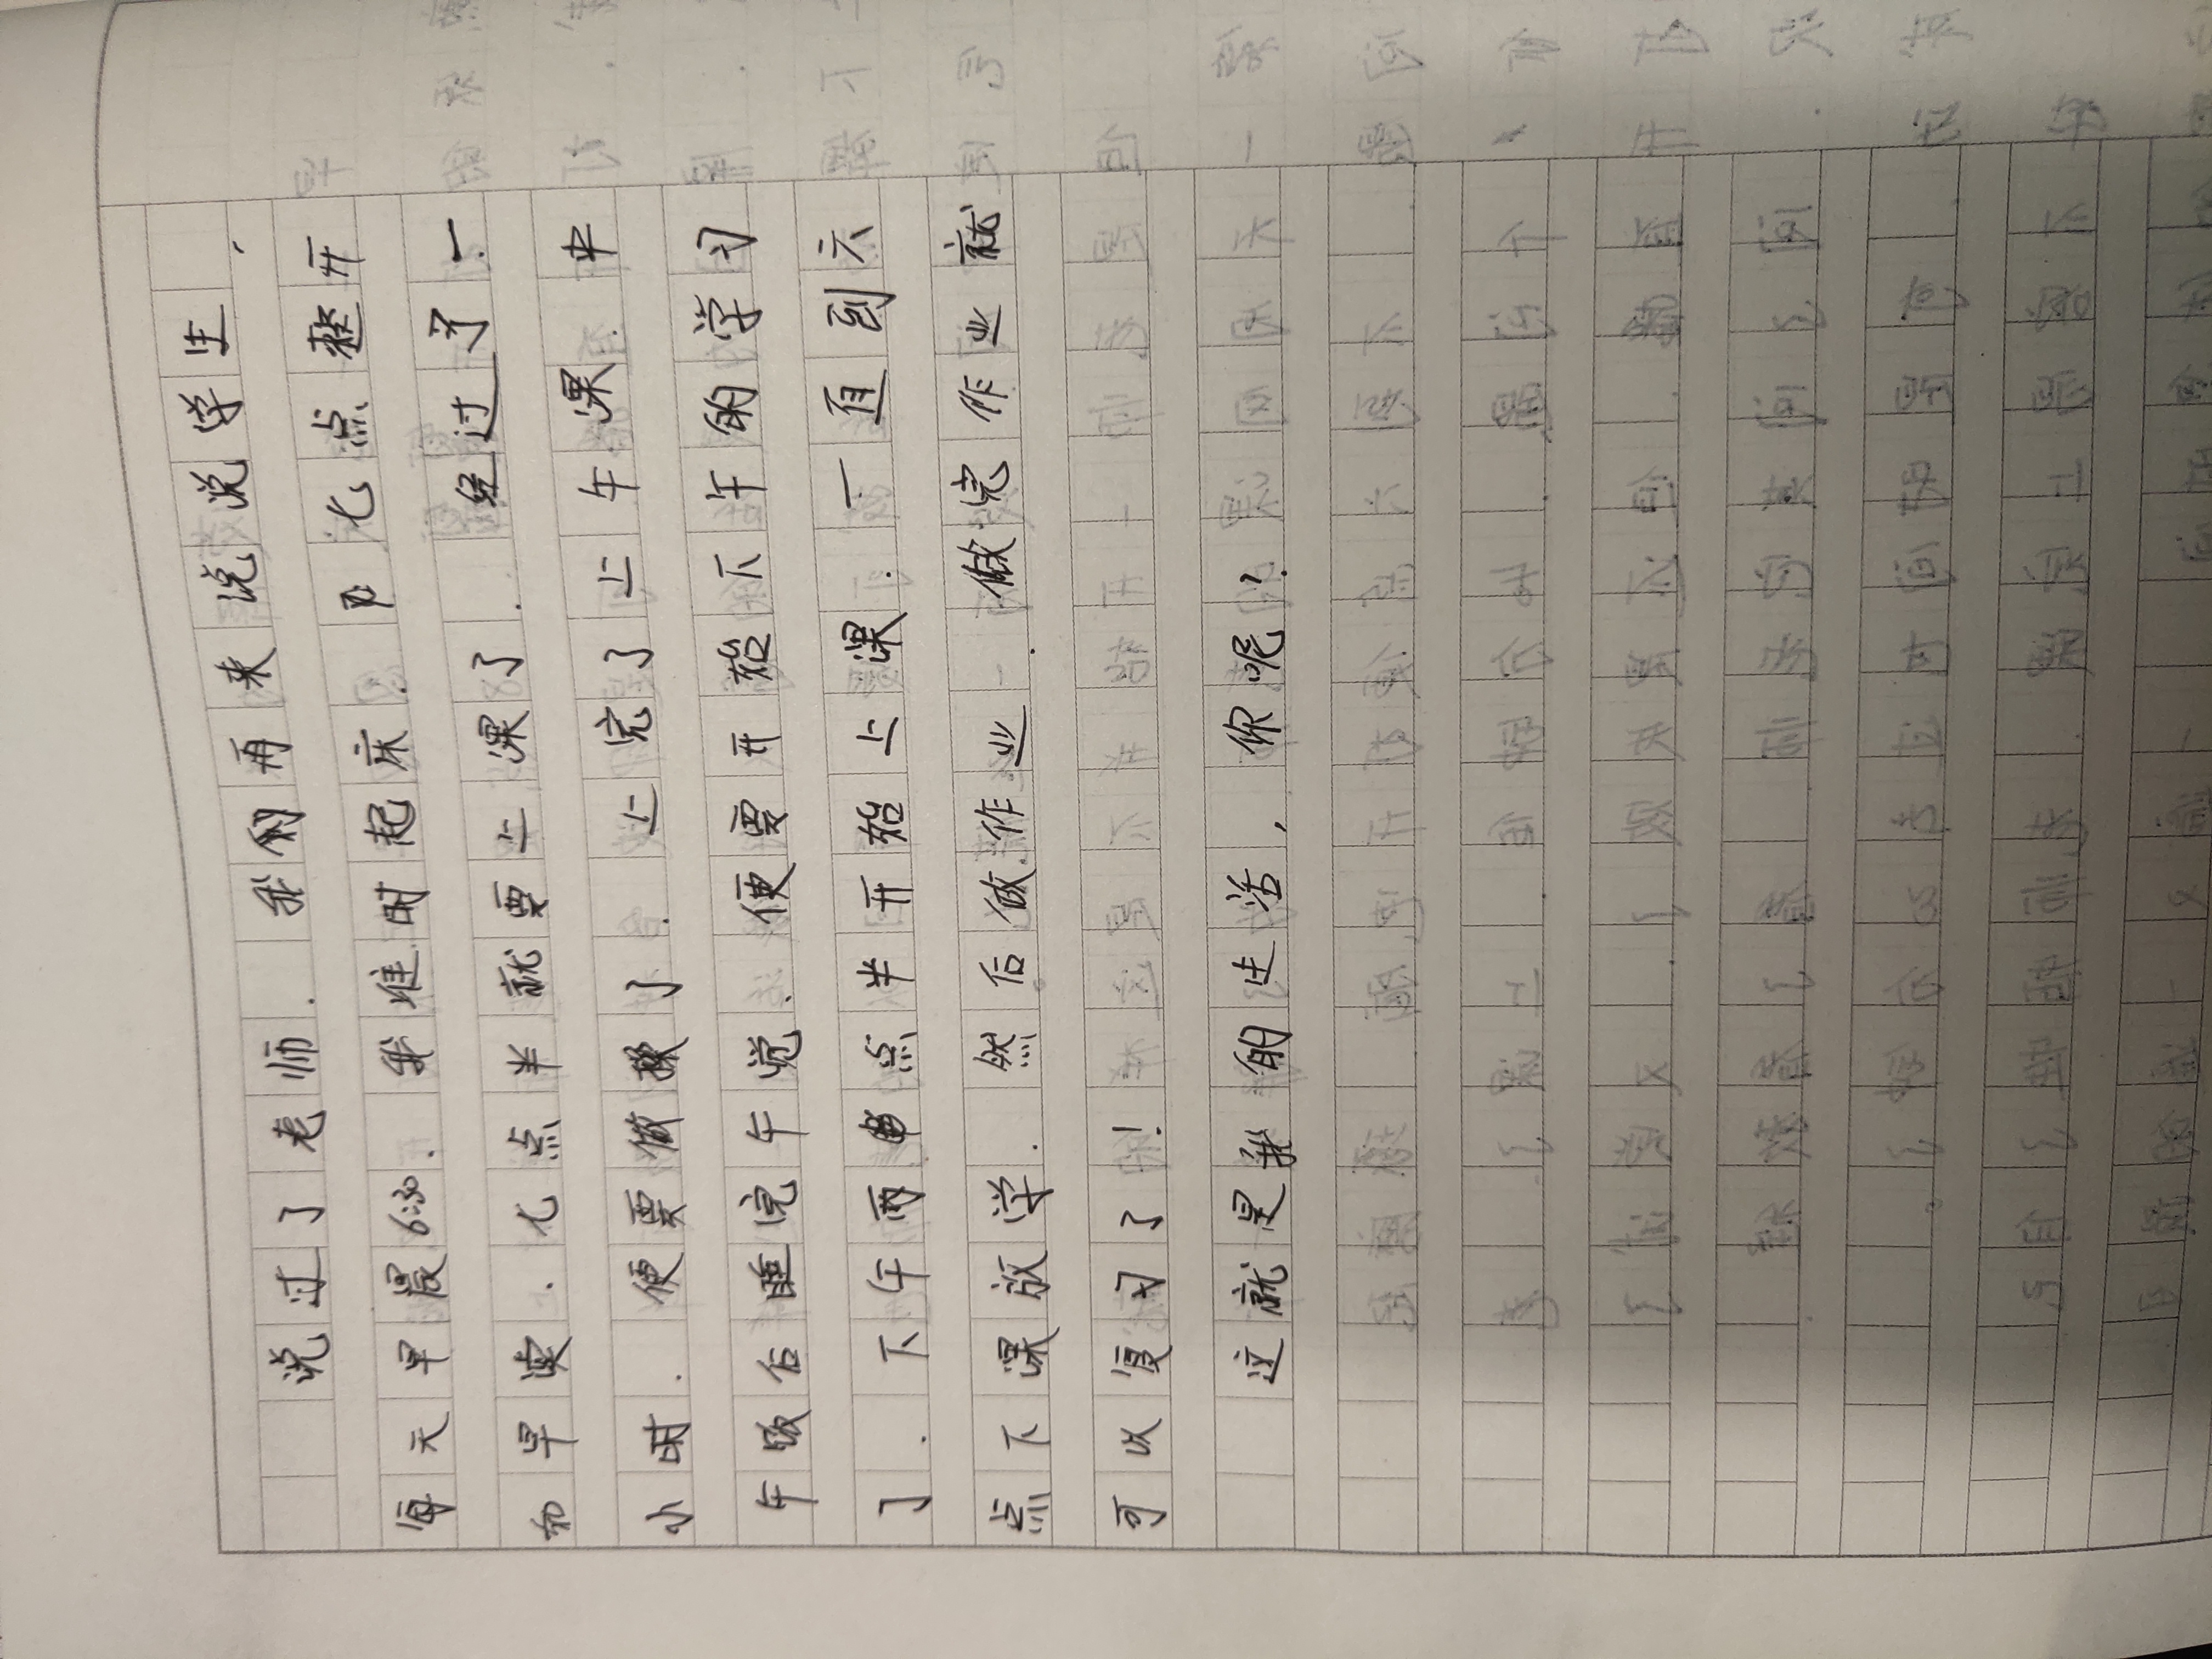 说过了老师.我们再来说说学生,
每天早晨6:30.我准时起床.七点整开
始早读、七点半就要上课了.经过了一
小时.便要做操了.上完了上午课.中
午饭后睡完午觉、便要开始下午的学习
了.下午两点半开始上课.一直到六
点下课放学.然后做作业.做完作业就
可以复习了!
这就是我的生活,你呢?